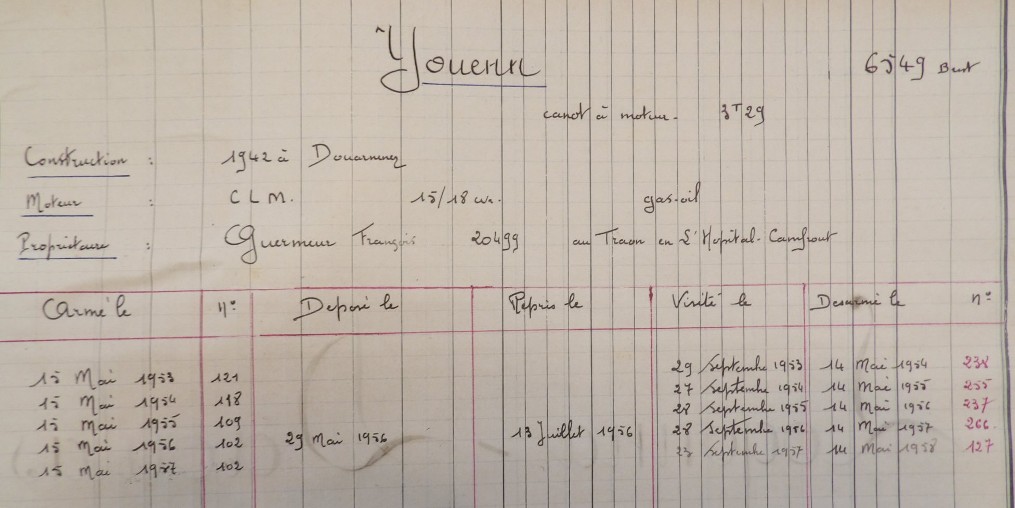 Youenn 6549 Brest
canot à moteur. 3T29
Construction : 1942 à Douarnenez
Moteur : C L M. 15/18 cv. gas-oil
Propriétaire : Guermeur François 20499 au Traon en L'Hopital-Camfrout
Armé le n° Deposé le Repris le Visité le Desarmé le n°
15 Mai 1953 121 29 Septembre 1953 14 Mai 1954 238
15 Mai 1954 118 27 Septembre 1954 14 Mai 1955 255
15 Mai 1955 109 28 Septembre 1955 14 Mai 1956 237
15 Mai 1956 102 29 Mai 1956 13 Juillet 1956 28 Septembre 1956 14 Mai 1957 266
15 Mai 1957 102 23 Septembre 1957 14 Mai 1958 127